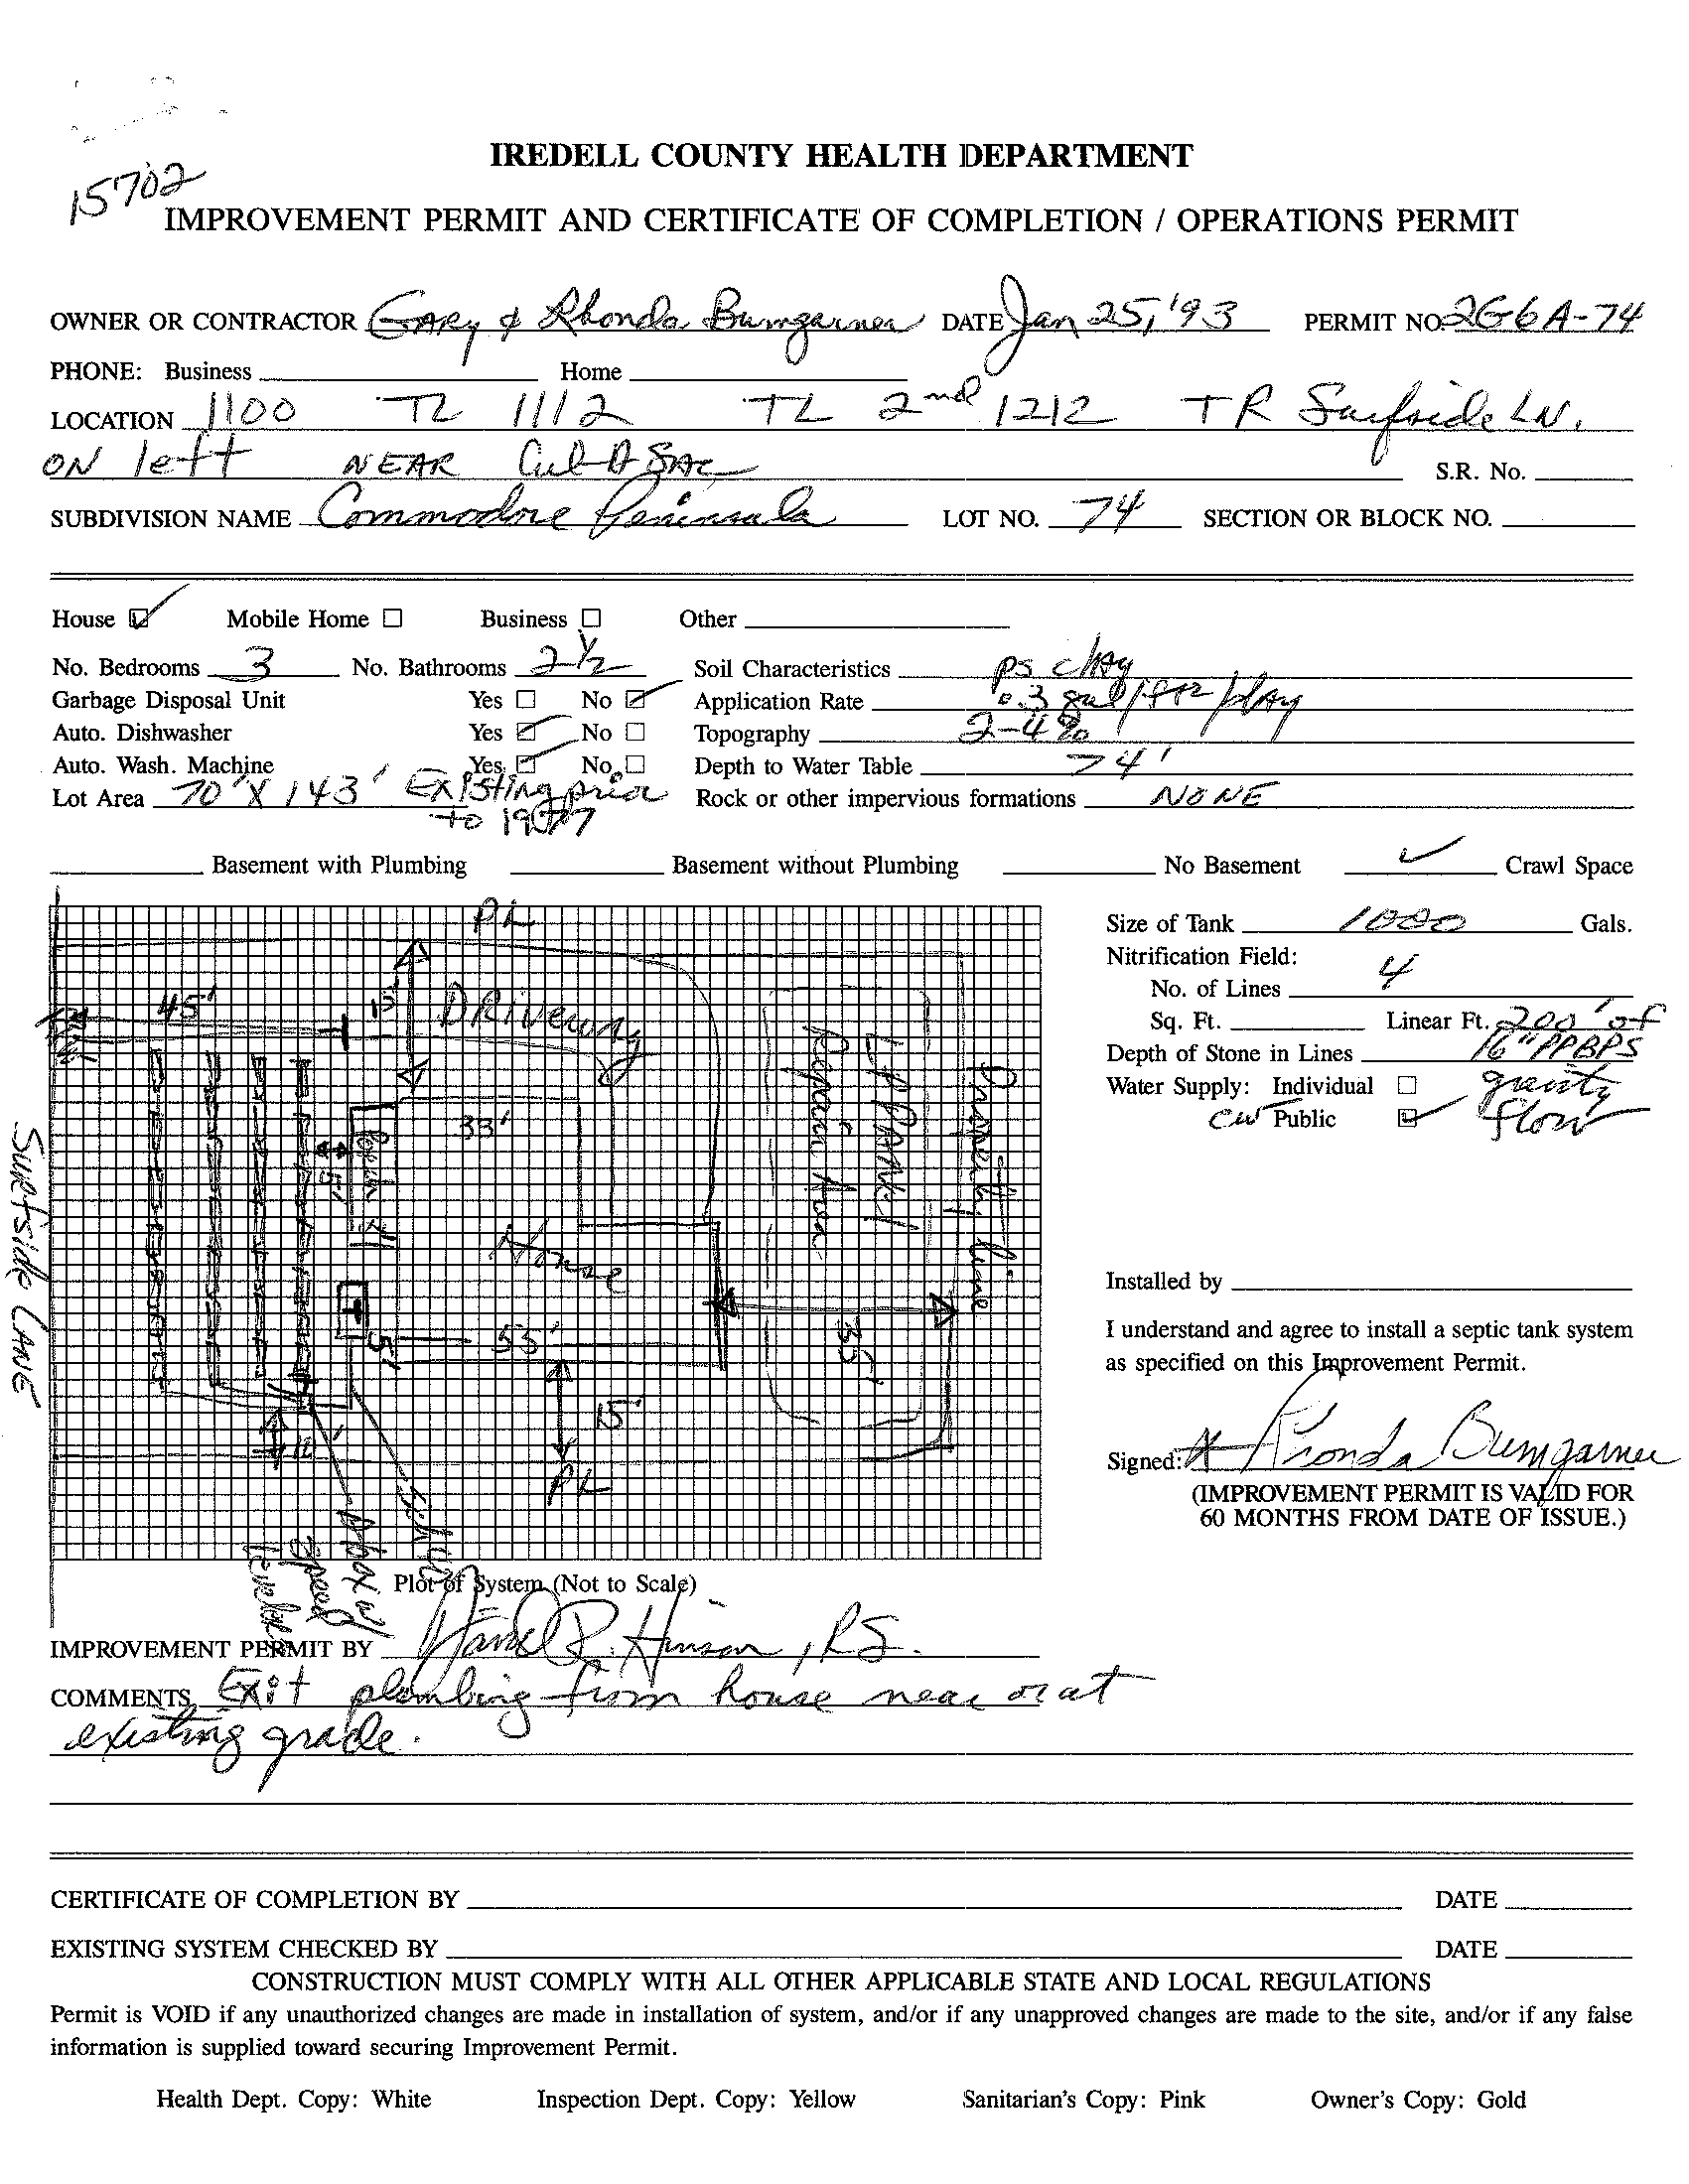 15702
IREDELL COUNTY HEALTH DEPARTMENT
IMPROVEMENT PERMIT AND CERTIFICATE OF COMPLETION / OPERATIONS PERMIT
OWNER OR CONTRACTOR Gary & Rhonda Bumgarner DATE Jan 25, '93 PERMIT NO. 2G6A-74
PHONE: Business Home
LOCATION 1100 TL 1112 TL 2nd 1212 TR Surfside LN.
ON left NEAR Cul-A SAC S.R. No.
SUBDIVISION NAME Commodore Peninsula LOT NO. 74 SECTION OR BLOCK NO.
House ☑ Mobile Home ☐ Business ☐ Other
No. Bedrooms 3 No. Bathrooms 2 1/2 Soil Characteristics PS clay
Garbage Disposal Unit Yes ☐ No ☑ Application Rate .3 gal/ft2/day
Auto. Dishwasher Yes ☑ No ☐ Topography 2-4%
Auto. Wash. Machine Yes ☑ No ☐ Depth to Water Table >4'
Lot Area 70' X 143' Existing prior to 1977 Rock or other impervious formations NONE
Basement with Plumbing Basement without Plumbing No Basement ✓ Crawl Space
PL
45'
15'
Driveway
33'
Porch
5'
House
53'
5'
15'
PL
10'
35'
LP PANEL
Repair Area
Property line
Surfside LANE
Dbox w
speed
levelers
Size of Tank 1000 Gals.
Nitrification Field:
No. of Lines 4
Sq. Ft. Linear Ft. 200' of
Depth of Stone in Lines 16" PPBPS
Water Supply: Individual ☐ gravity
CW Public ☑ flow
Installed by
I understand and agree to install a septic tank system
as specified on this Improvement Permit.
Signed: X Rhonda Bumgarner
(IMPROVEMENT PERMIT IS VALID FOR
60 MONTHS FROM DATE OF ISSUE.)
Plot of System (Not to Scale)
IMPROVEMENT PERMIT BY R. Hinson, RS.
COMMENTS Exit plumbing from house near or at
existing grade.
CERTIFICATE OF COMPLETION BY DATE
EXISTING SYSTEM CHECKED BY DATE
CONSTRUCTION MUST COMPLY WITH ALL OTHER APPLICABLE STATE AND LOCAL REGULATIONS
Permit is VOID if any unauthorized changes are made in installation of system, and/or if any unapproved changes are made to the site, and/or if any false
information is supplied toward securing Improvement Permit.
Health Dept. Copy: White Inspection Dept. Copy: Yellow Sanitarian's Copy: Pink Owner's Copy: Gold